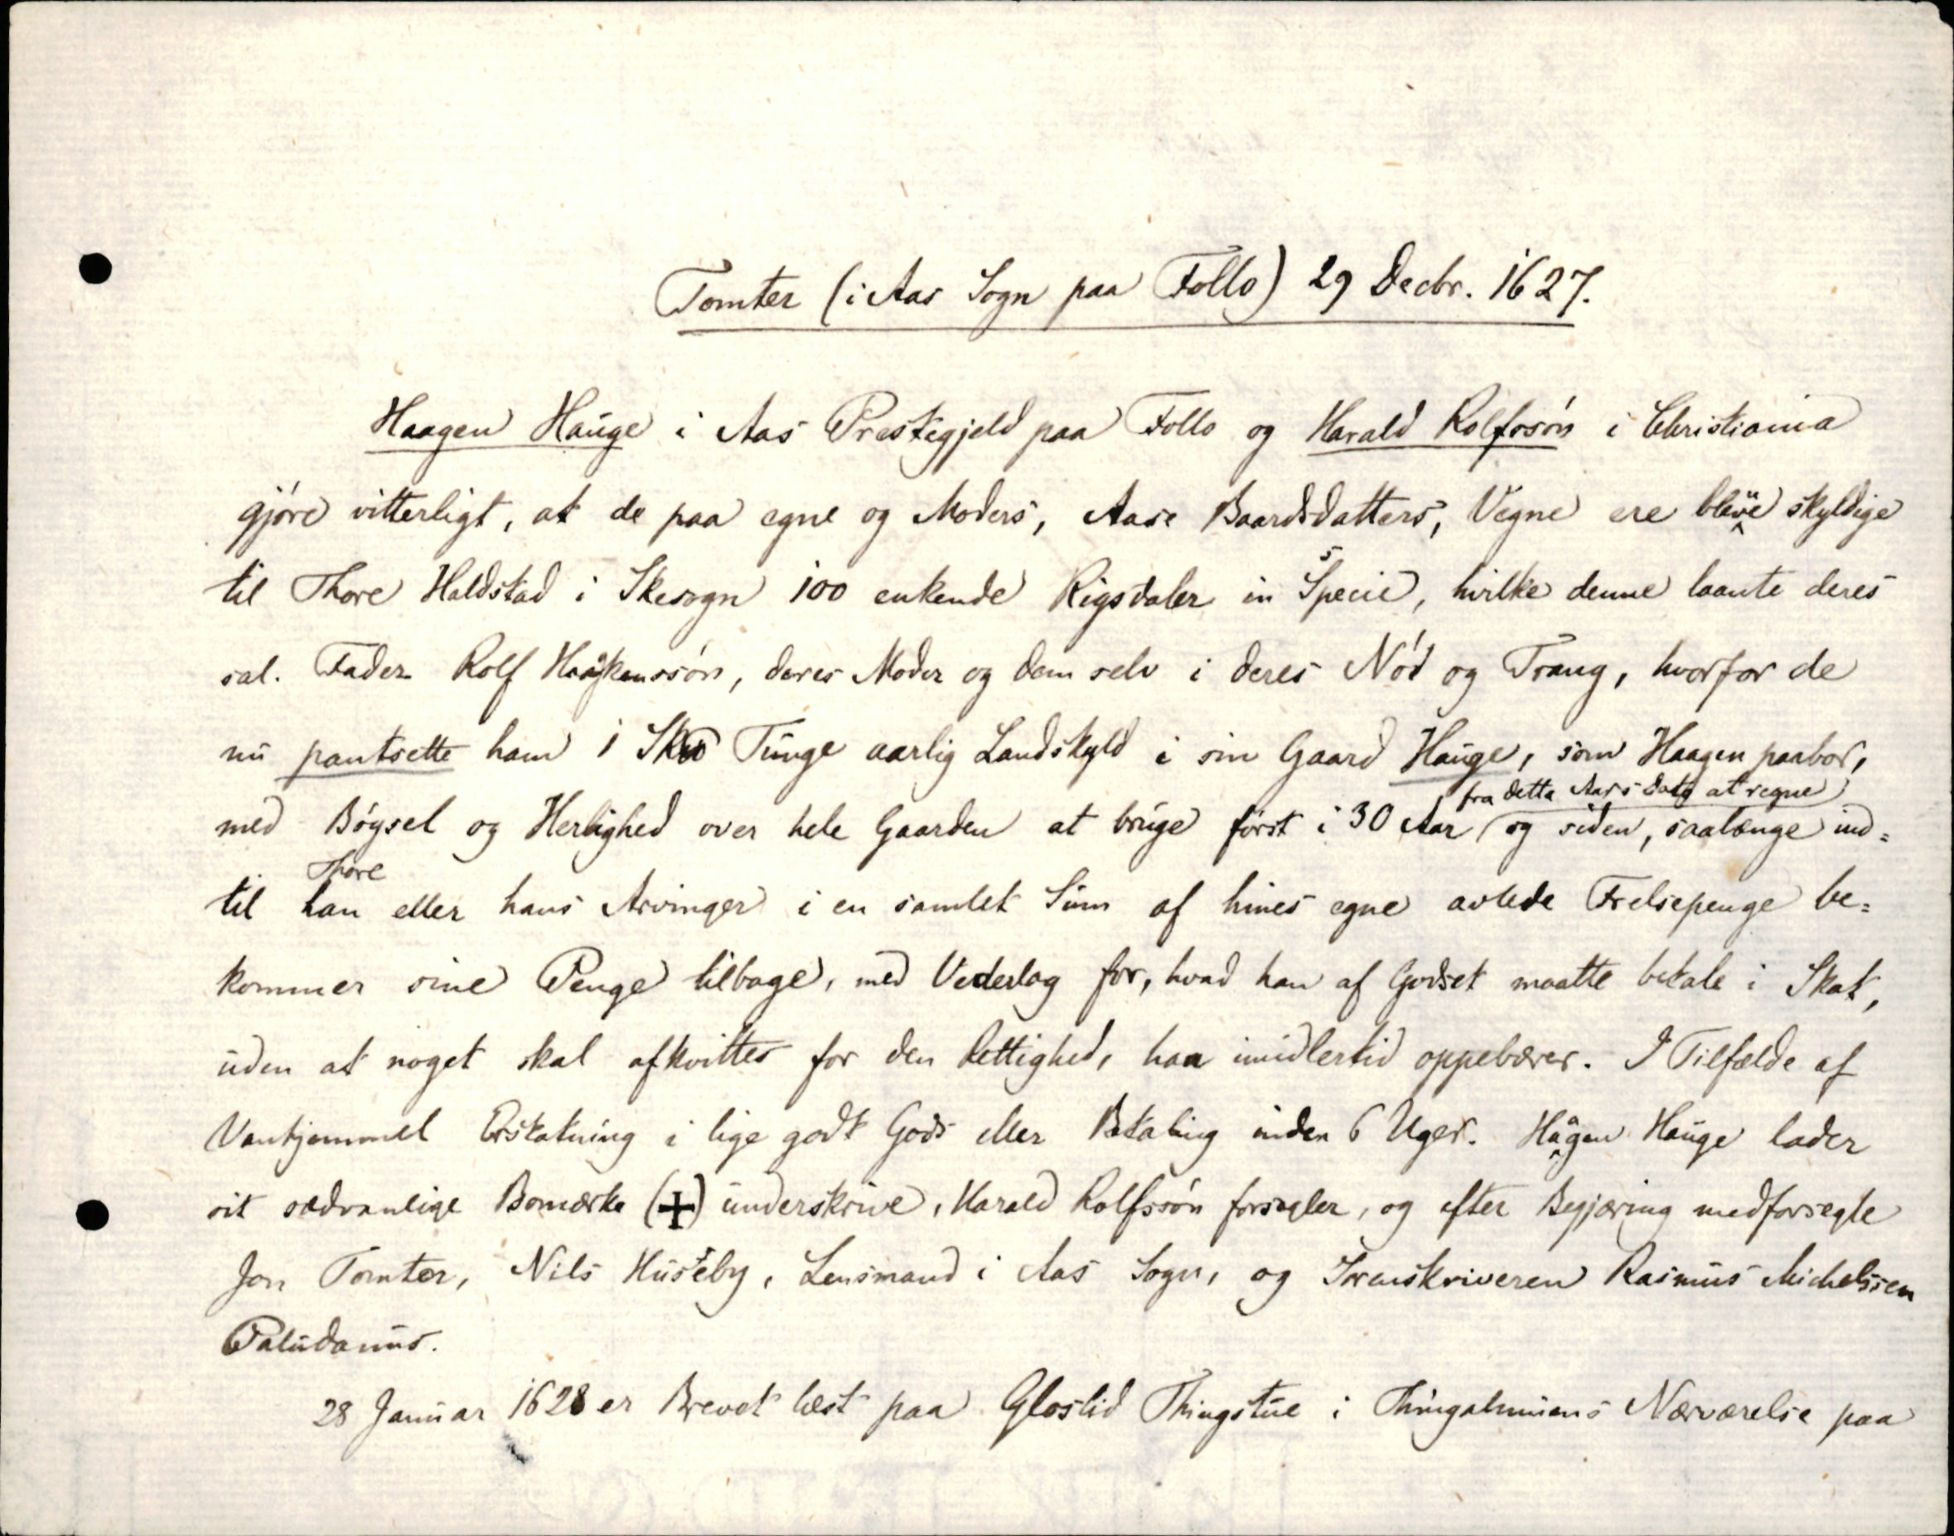 Tomter (i Aas Sogn paa Follo) 29 Decbr. 1627.
Haagen Hauge i Aas Prestegjeld paa Follo og Harald Rolfssón i Christiania
gjóre vitterligt, at de paa egne og Moders, Aase Baardsdatters, Vegne ere bleve skyldige
til Thore Haldstad i Skesogn 100 enkende Rigsdaler in Specie, hvilke denne laante deres
sal. Fader Rolf Haakenssón, deres Moder og dem selv i deres Nód og Trang, hvorfor de
nu pantsette ham 1 Skd Tunge aarlig Landskyld i sin Gaard Hauge, som Haagen paabor,
fra detta Aars Dato at regne
med Bógsel og Herlighed over hele Gaarden at bruge fórst i 30 Aar og siden, saalænge ind=
Thore
til han eller hans Arvinger i en samlet Sum af hines egne avlede Frelsepenge be=
kommer sine Penge tilbage, med Vederlag for, hvad han af Godset maatte betale i Skat,
uden at noget skal afkvittes for den Rettighed, han imidlertid oppebærer. I Tilfælde af
Vanhjemmel Erstatning i lige godt Gods eller Betaling inden 6 Uger. Hågen Hauge lader
sit sædvanlige Bomærke (+) underskrive, Harald Rolfssón forsegler, og efter Begjæring medforsegle
Jon Tomter, Nils Huseby, Lensmand i Aas Sogn, og Sorenskriveren Rasmus Michelssen
Paludanus.
28 Januar 1628 er Brevet læst paa Gloslid Thingstue i Thingalmuens Nærværelse paa